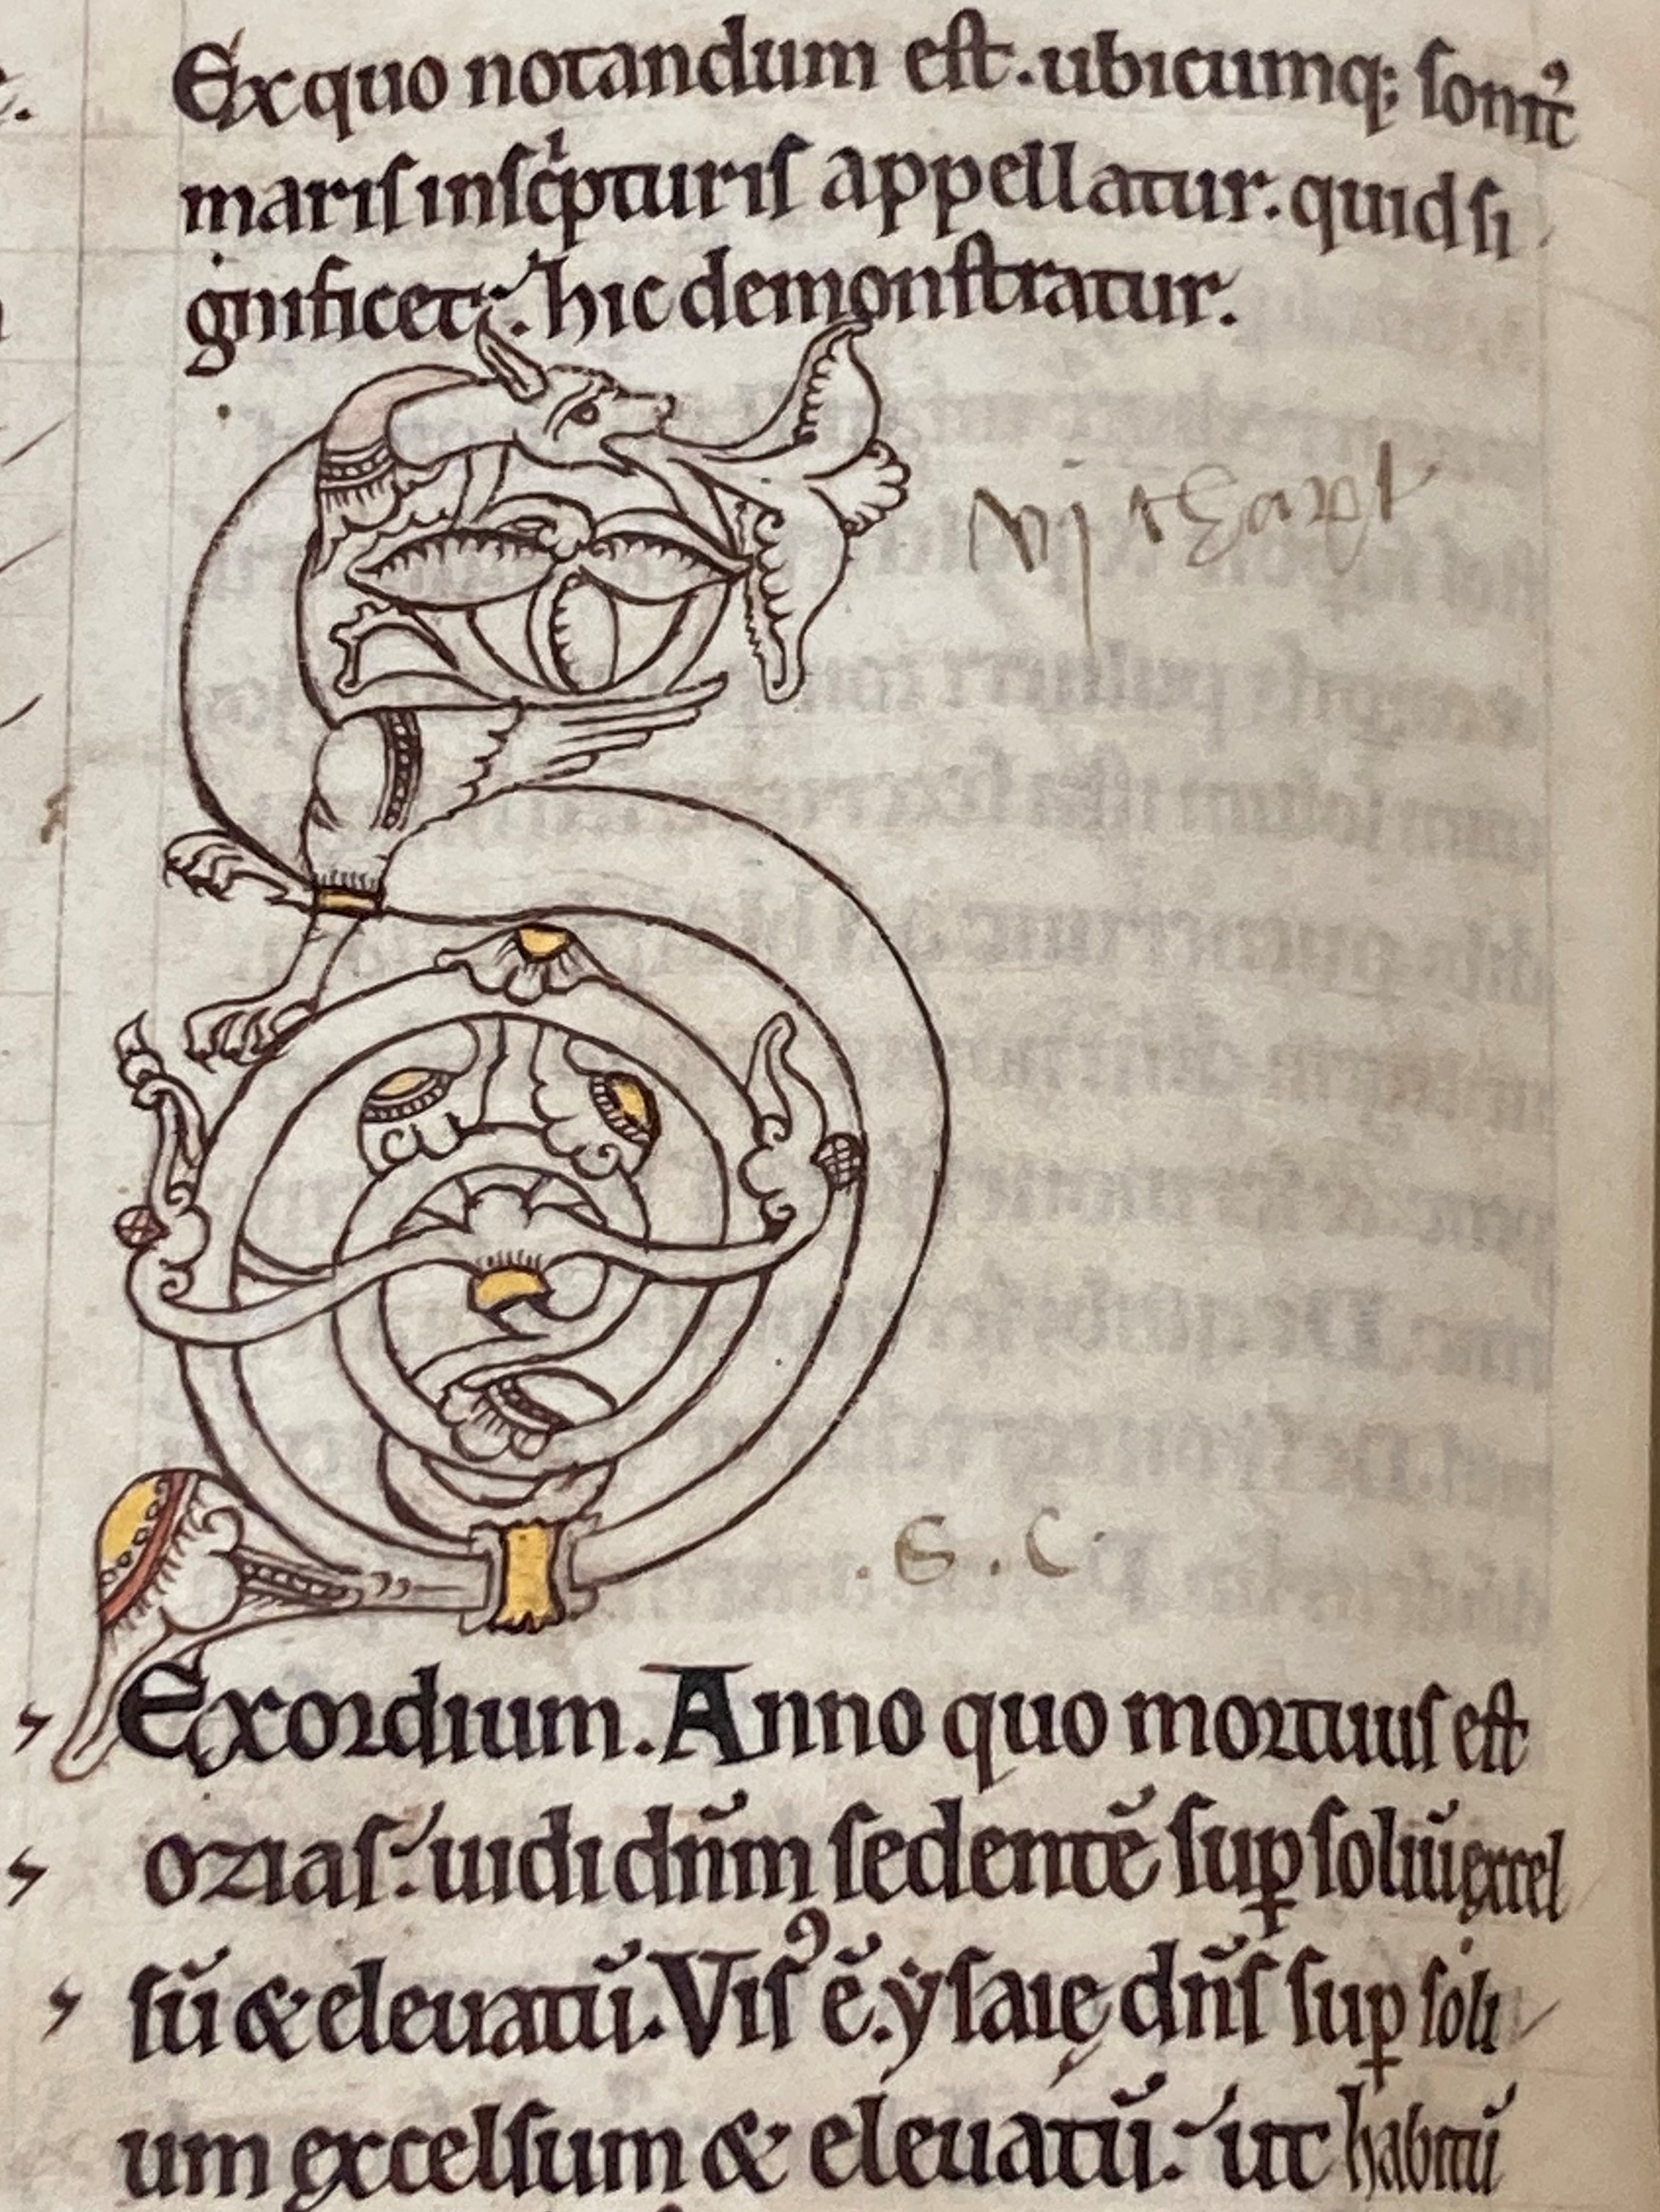 Ex quo notandum eſt. ubicumq; ſonitꝰ
mariſ inſcͥpturiſ appellatur. quid ſi
gnificet: hic demonſtratur.
.S.C.
Exordium. Anno quo mortuuſ eſt
oziaſ: uidi dn̄m ſedentē ſuꝑ ſoliū excel
ſū & eleuatū. Viſꝰ ē. ẏſaię dn̄ſ ſuꝑ ſoli
um excelſum & eleuatū: ut habitū